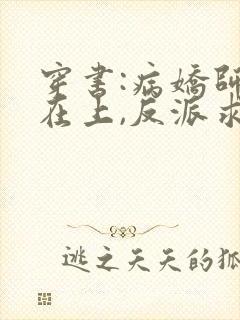 穿書:病嬌師
在上,反派求
逃之夭夭的狐